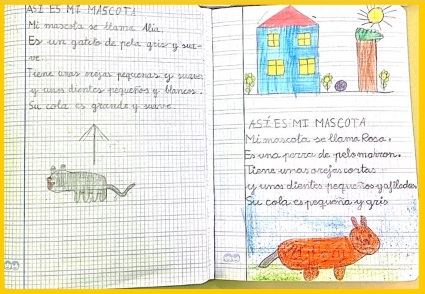 ASÍ ES MI MASCOTA
Mi mascota se llama Alia.
Es un gatito de pelo gris y sua-
ve.
Tiene unas orejas pequeñas y suaves
y unos dientes pequeños y blancos.
Su cola es grande y suave.
ASÍ ES MI MASCOTA
Mi mascota se llama Rosa.
Es una perra de pelo marron.
Tiene unas orejas cortas
y unos dientes pequeños y afilados
Su cola es pequeña y gris